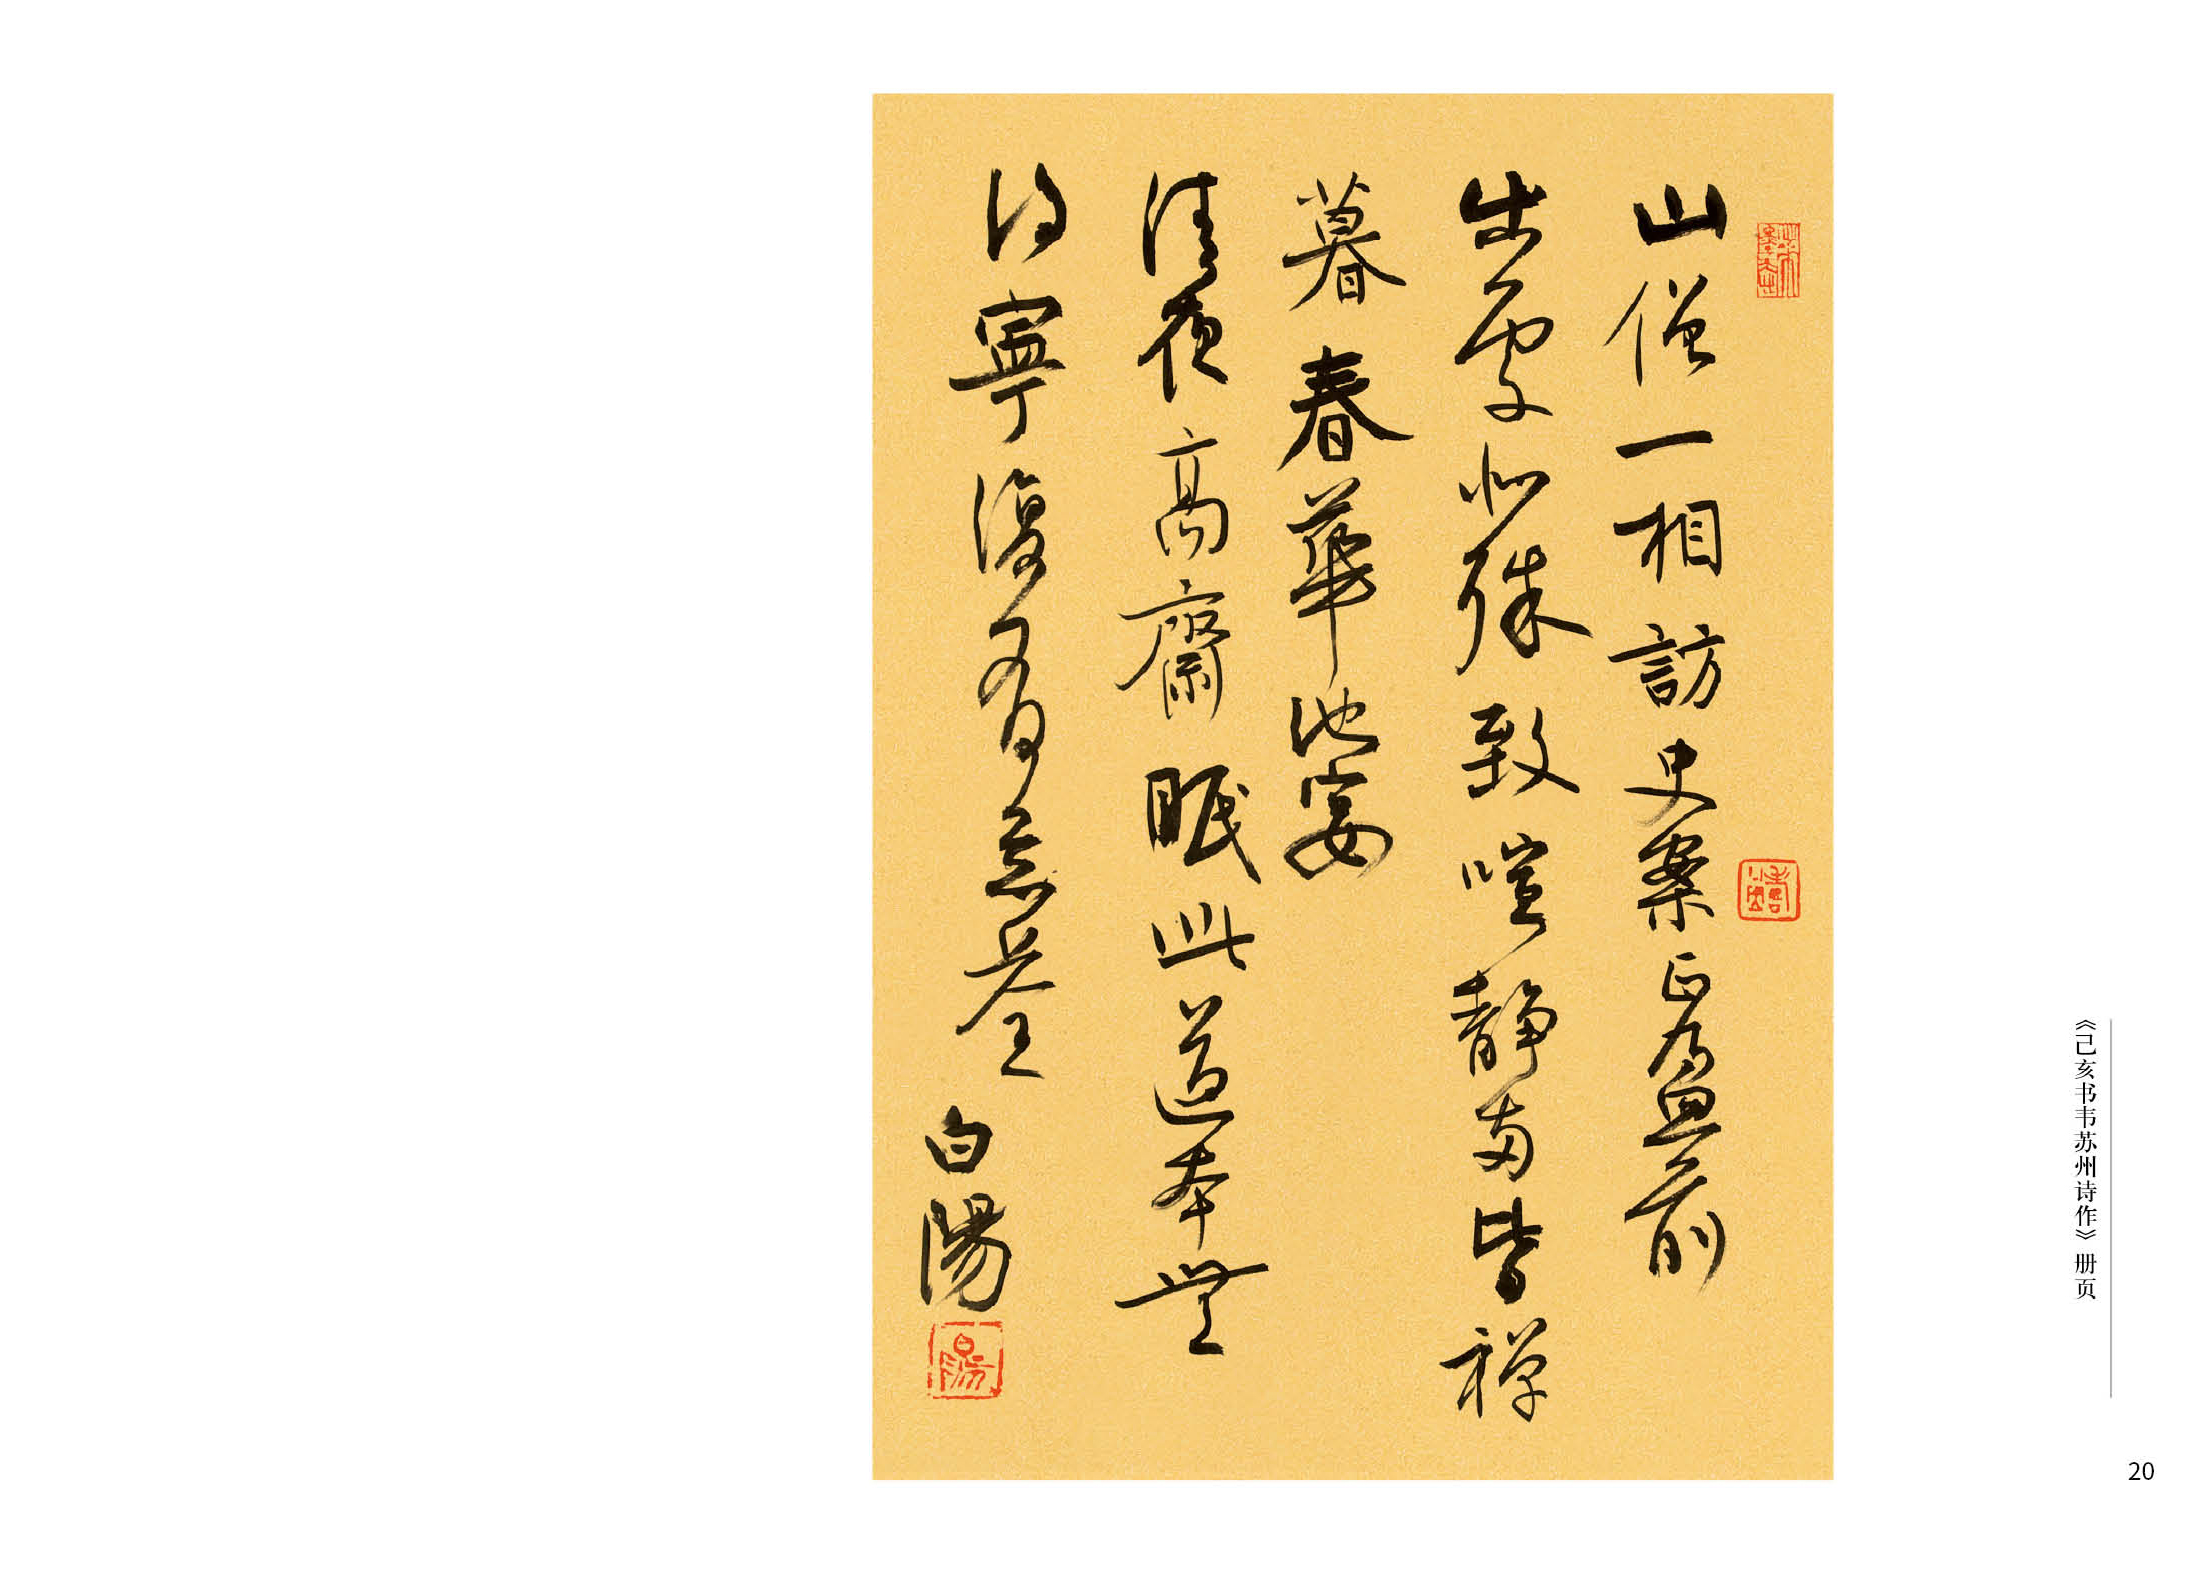 山僧一相訪史案正盈前
出處似殊致喧静兩皆禅
暮春華池宴
清夜高齋眠此道本無
得寧復有忘荃
白陽
白陽
《己亥书韦苏州诗作》册页
20